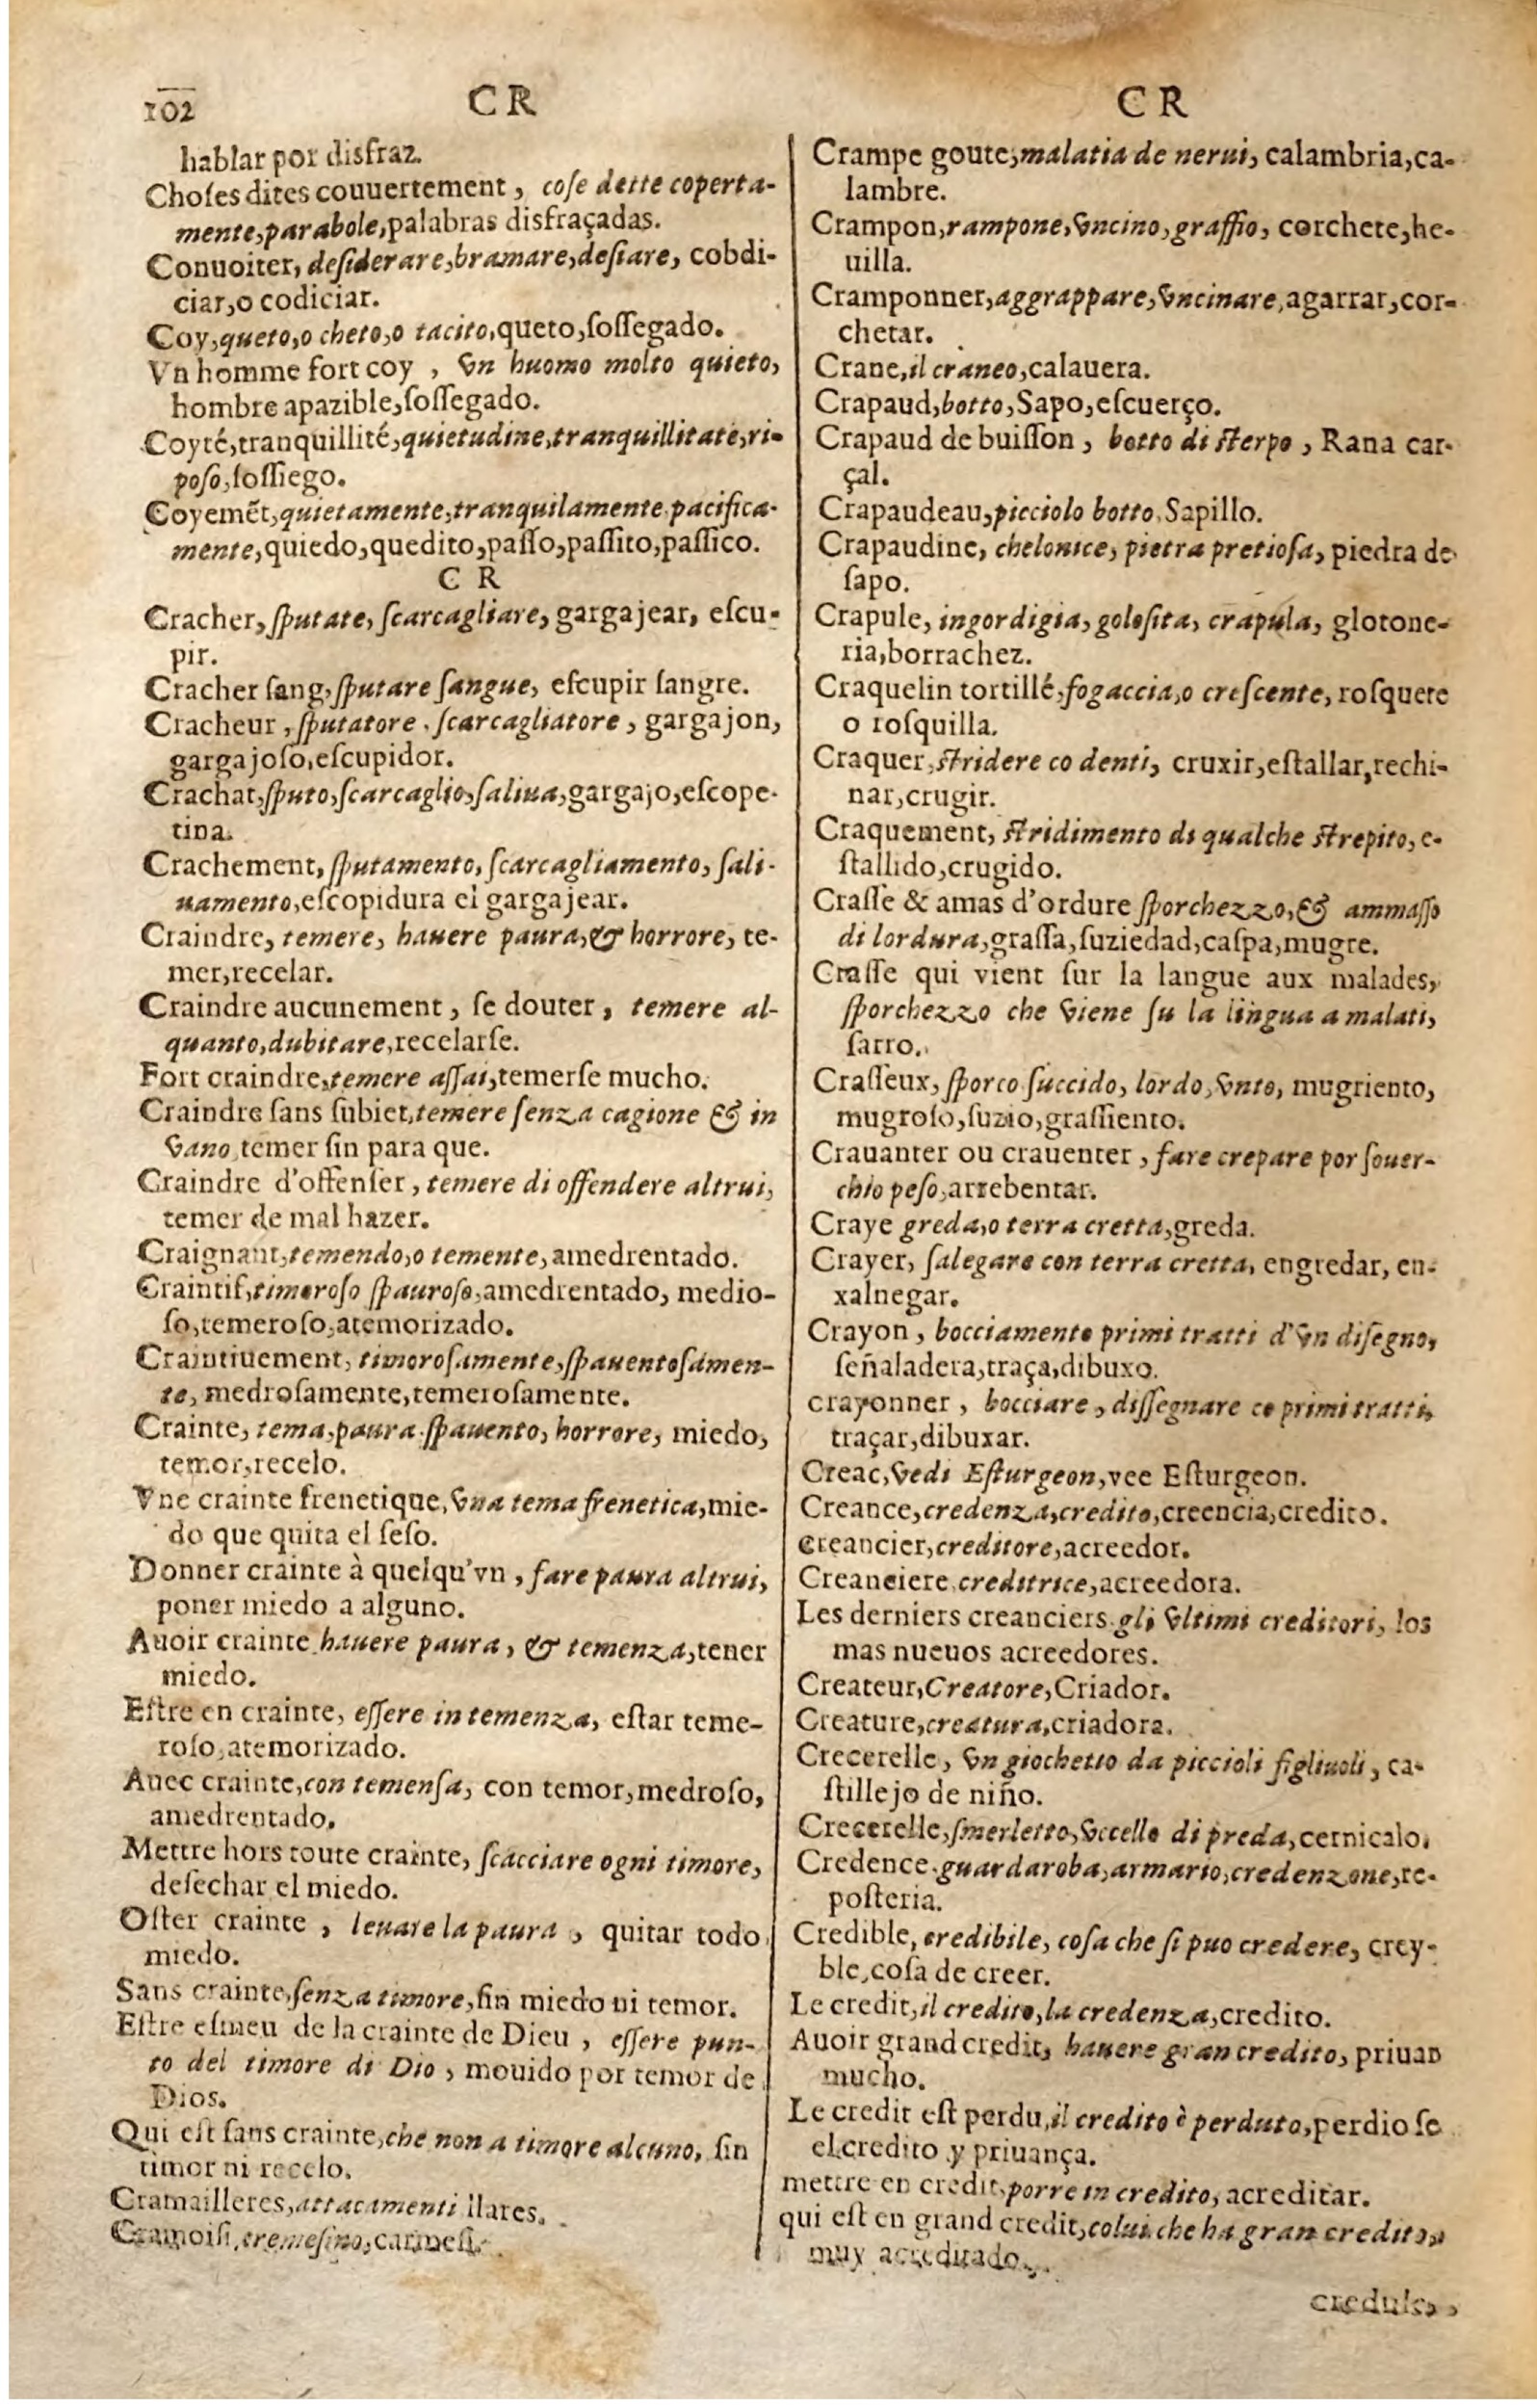 102
C R
C R
hablar por disfraz.
Choſes dites couuertement, coſe dette coperta-
mente, parabole, palabras disfraçadas.
Conuoiter, deſiderare, bramare, deſiare, cobdi-
ciar, o codiciar.
Coy, queto, o cheto, o tacito, queto, ſoſſegado.
Vn homme fort coy, vn huomo molto quieto,
hombre apazible, ſoſſegado.
Coyté, tranquillité, quietudine, tranquillitate, ri-
poſo, ſoſſiego.
Coyemēt, quietamente, tranquilamente pacifica-
mente, quiedo, quedito, paſſo, paſſito, paſſico.
C R
Cracher, ſputate, ſcarcagliare, gargajear, eſcu-
pir.
Cracher ſang, ſputare ſangue, eſcupir ſangre.
Cracheur, ſputatore, ſcarcagliatore, gargajon,
gargajoſo, eſcupidor.
Crachat, ſputo, ſcarcaglio, ſaliua, gargajo, eſcope-
tina.
Crachement, ſputamento, ſcarcagliamento, ſali-
uamento, eſcopidura el gargajear.
Craindre, temere, hauere paura, & horrore, te-
mer, recelar.
Craindre aucunement, ſe douter, temere al-
quanto, dubitare, recelarſe.
Fort craindre, temere aſſai, temerſe mucho.
Craindre ſans ſubiet, temere ſenza cagione & in
vano, temer ſin para que.
Craindre d'offenſer, temere di offendere altrui,
temer de mal hazer.
Craignant, temendo, o temente, amedrentado.
Craintif, timoroſo ſpauroſo, amedrentado, medio-
ſo, temeroſo, atemorizado.
Craintiuement, timoroſamente, ſpauentoſamen-
te, medroſamente, temeroſamente.
Crainte, tema, paura ſpauento, horrore, miedo,
temor, recelo.
Vne crainte frenetique, vna tema frenetica, mie-
do que quita el ſeſo.
Donner crainte à quelqu'vn, fare paura altrui,
poner miedo a alguno.
Auoir crainte, hauere paura, & temenza, tener
miedo.
Eſtre en crainte, eſſere in temenza, eſtar teme-
roſo, atemorizado.
Auec crainte, con temenſa, con temor, medroſo,
amedrentado.
Mettre hors toute crainte, ſcacciare ogni timore,
deſechar el miedo.
Oſter crainte, leuare la paura, quitar todo
miedo.
Sans crainte, ſenza timore, ſin miedo ni temor.
Eſtre eſmeu de la crainte de Dieu, eſſere pun-
to del timore di Dio, mouido por temor de
Dios.
Qui eſt ſans crainte, che non a timore alcuno, ſin
timor ni recelo.
Cramailleres, attacamenti llares.
Cramoiſi, cremeſino, carmeſi.
Crampe goute, malatia de nerui, calambria, ca-
lambre.
Crampon, rampone, vncino, graffio, corchete, he-
uilla.
Cramponner, aggrappare, vncinare, agarrar, cor-
chetar.
Crane, il craneo, calauera.
Crapaud, botto, Sapo, eſcuerço.
Crapaud de buiſſon, botto di ſterpo, Rana car-
çal.
Crapaudeau, picciolo botto, Sapillo.
Crapaudine, chelonite, pietra pretioſa, piedra de
ſapo.
Crapule, ingordigia, goloſita, crapula, glotone-
ria, borrachez.
Craquelin tortillé, fogaccia, o creſcente, roſquete
o roſquilla.
Craquer, ſtridere co denti, cruxir, eſtallar, rechi-
nar, crugir.
Craquement, ſtridimento di qualche ſtrepito, e-
ſtallido, crugido.
Craſſe & amas d'ordure ſporchezzo, & ammaſſo
di lordura, graſſa, ſuziedad, caſpa, mugre.
Craſſe qui vient ſur la langue aux malades,
ſporchezzo che viene ſu la lingua a malati,
ſarro.
Craſſeux, ſporco ſuccido, lordo, vnto, mugriento,
mugroſo, ſuzio, graſſiento.
Crauanter ou crauenter, fare crepare por ſouer-
chio peſo, arrebentar.
Craye greda, o terra cretta, greda.
Crayer, ſalegare con terra cretta, engredar, en-
xalnegar.
Crayon, bocciamento primi tratti d'vn diſegno,
ſeñaladera, traça, dibuxo.
crayonner, bocciare, diſſegnare co primi tratti,
traçar, dibuxar.
Creac, vedi Eſturgeon, vee Eſturgeon.
Creance, credenza, credito, creencia, credito.
creancier, creditore, acreedor.
Creanciere creditrice, acreedora.
Les derniers creanciers gli vltimi creditori, los
mas nueuos acreedores.
Createur, Creatore, Criador.
Creature, creatura, criadora.
Crecerelle, vn giochetto da piccioli figliuoli, ca-
ſtillejo de niño.
Crecerelle, ſmerletto, vccello di preda, cernicalo.
Credence, guardaroba, armario, credenzone, re-
poſteria.
Credible, credibile, coſa che ſi puo credere, crey-
ble, coſa de creer.
Le credit, il credito, la credenza, credito.
Auoir grand credit, hauere gran credito, priuan
mucho.
Le credit eſt perdu, il credito è perduto, perdio ſe
el credito y priuança.
mettre en credit, porre in credito, acreditar.
qui eſt en grand credit, colui che ha gran credito,
muy acreditado.
credule,